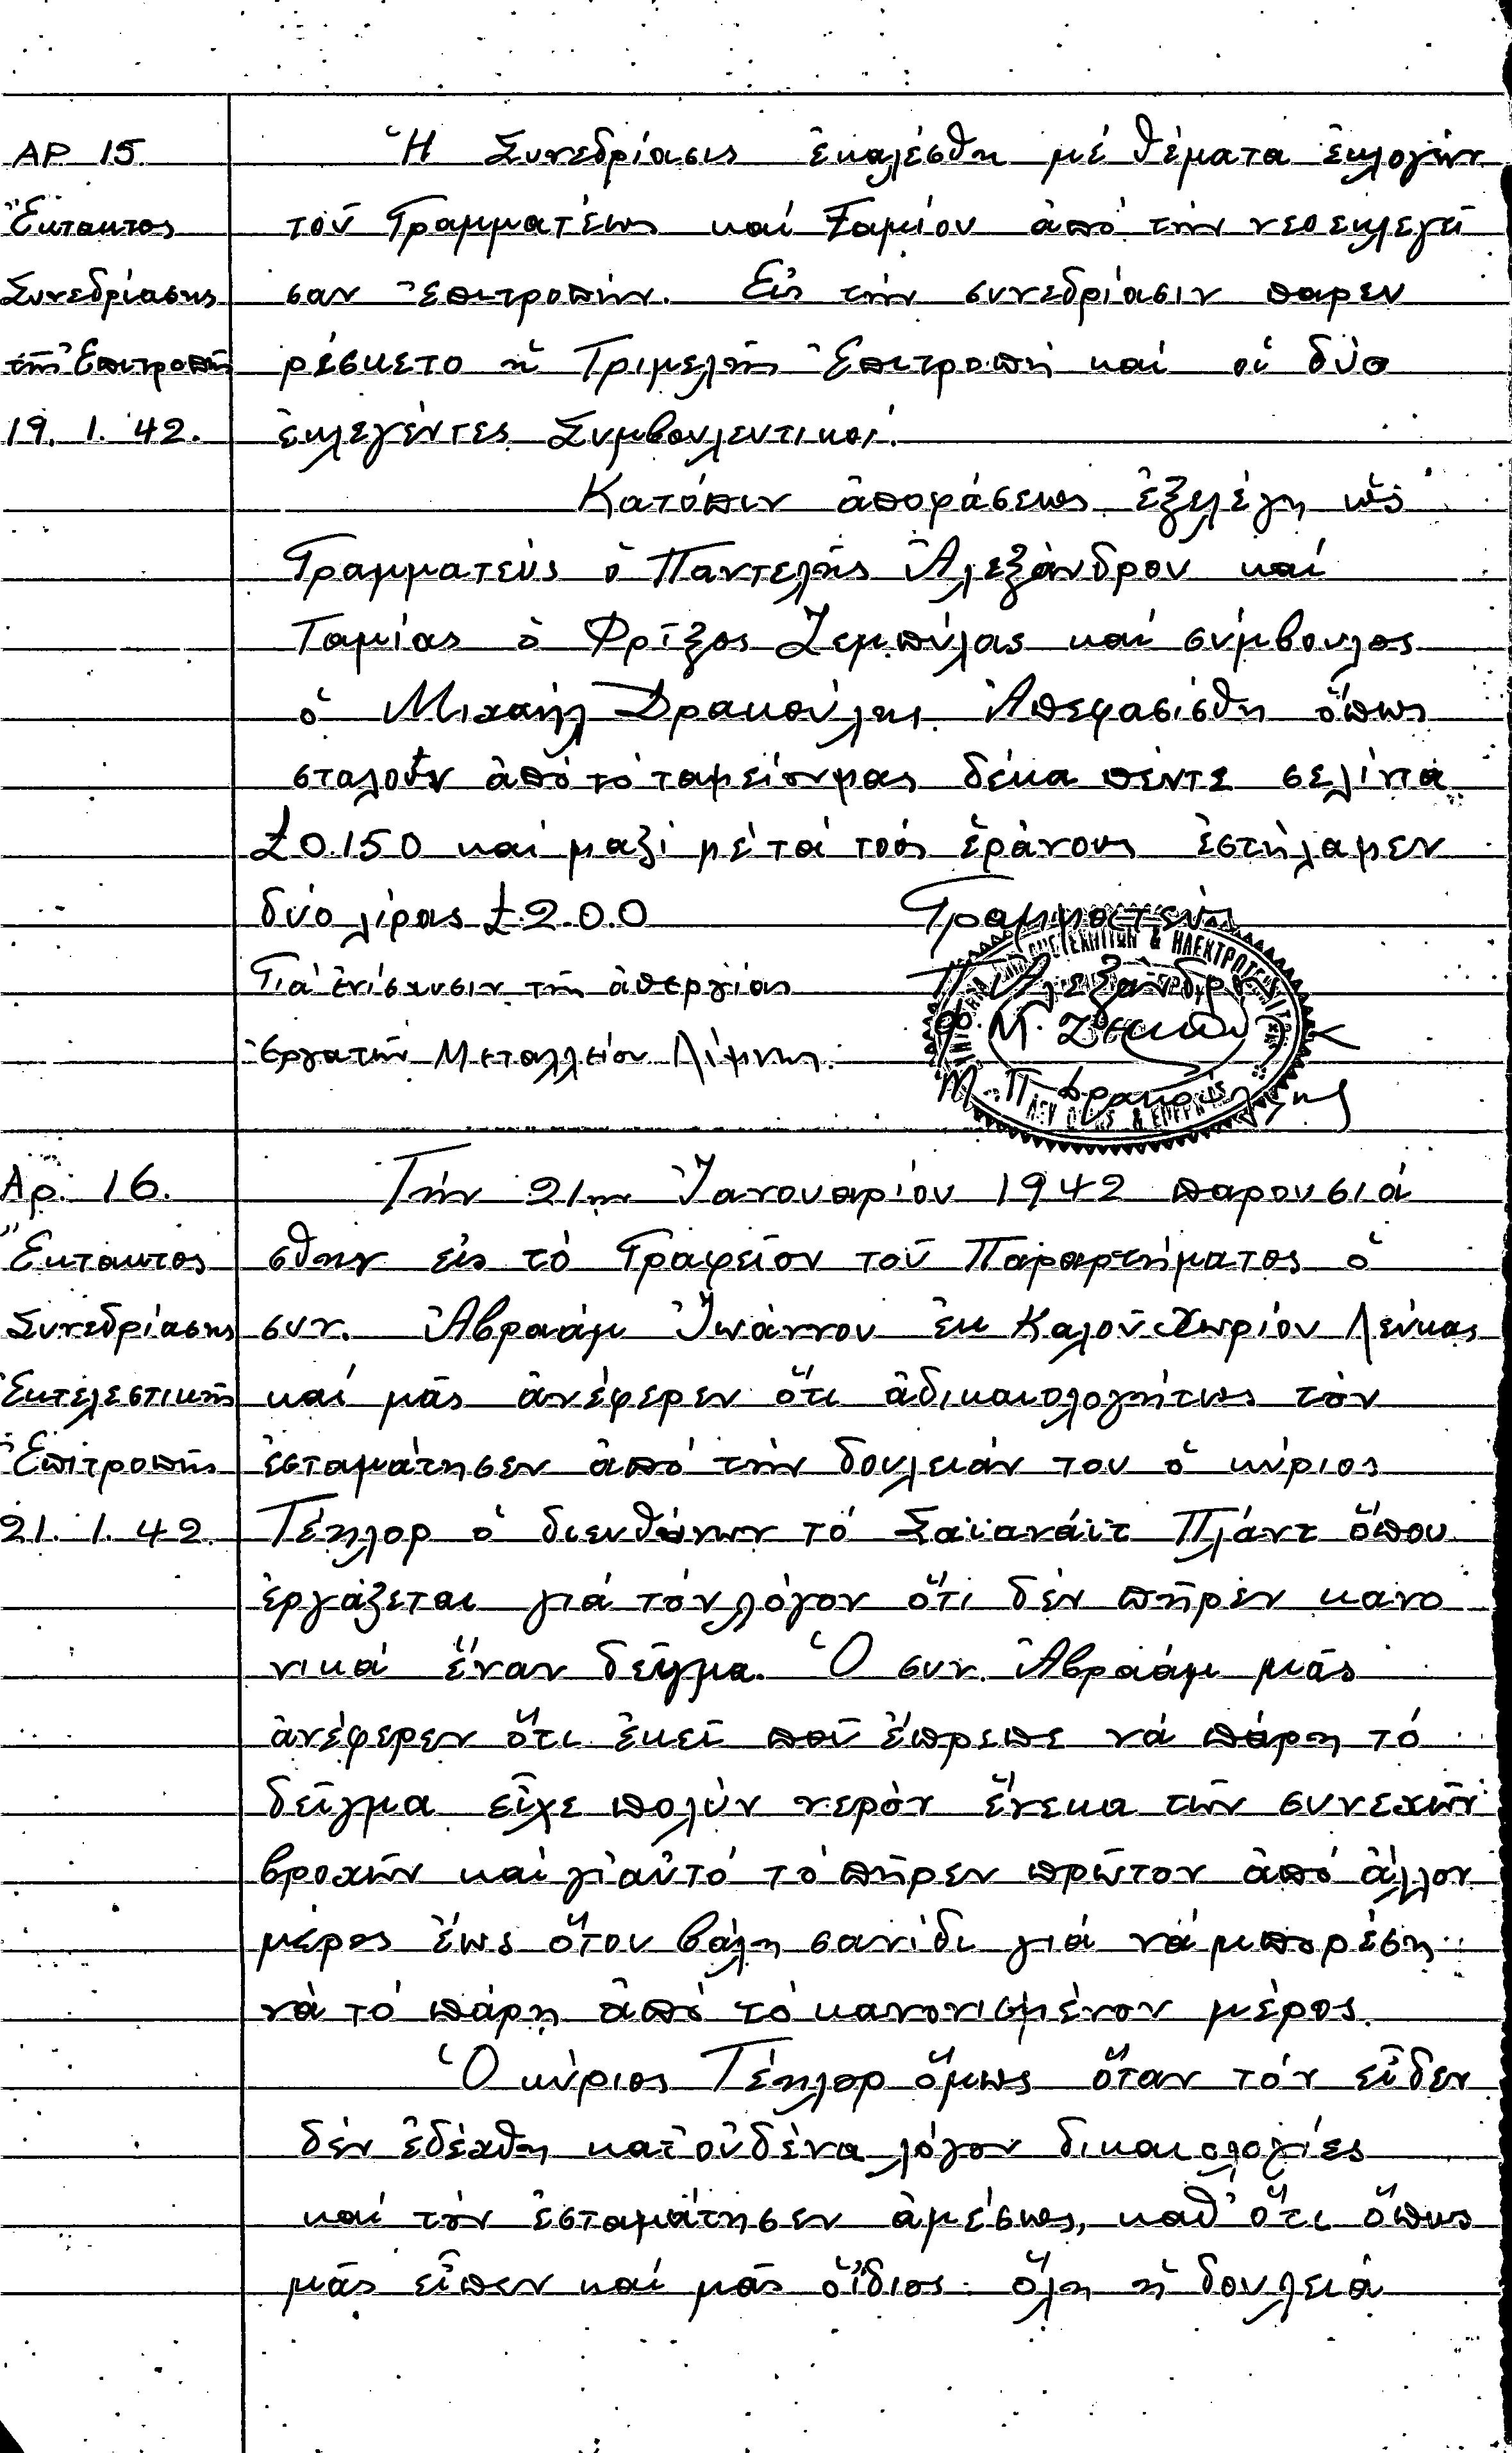 ΑΡ 15
Ἔκτακτος
Συνεδρίασις
τῆς Ἐπιτροπῆς
19. 1. 42.
Ἡ Συνεδρίασις ἐκαλέσθη μέ θέματα ἐκλογήν
τοῦ Γραμματέως καί Ταμίου ἀπό τήν νεοεκλεγεῖ
σαν Ἐπιτροπήν. Εἰς τήν συνεδρίασιν παρευ
ρέσκετο ἡ Τριμελής Ἐπιτροπή καί οἱ δύο
ἐκλεγέντες Συμβουλευτικοί.
Κατόπιν ἀποφάσεως ἐξελέγη ὡς
Γραμματεύς ὁ Παντελῆς Ἀλεξάνδρου καί
Ταμίας ὁ Φρῖξος Ζεμπύλας καί σύμβουλος
ὁ Μιχαήλ Δρακούλης. Ἀπεφασίσθη ὅπως
σταλοῦν ἀπό τό ταμεῖον μας δέκα πέντε σελίνια
£0.15.0 καί μαζί μέ τά τούς ἐράνους ἐστήλαμεν
δύο λίρας £2.0.0
Γιά ἐνίσχυσιν τῆς ἀπεργίας
Ἐργατῶν Μεταλλείου Λίμνης.
Γραμματεύς
Π. Ἀλεξάνδρου
Μ. Π. Δρακούλης
Αρ. 16.
Ἔκτακτος
Συνεδρίασης
Ἐκτελεστικῆς
Ἐπιτροπῆς
21. 1. 42.
Τήν 21ην Ἰανουαρίου 1942 παρουσιά
σθην εἰς τό Γραφεῖον τοῦ Παραρτήματος ὁ
συν. Ἀβραάμ Ἰωάννου ἐκ Καλοῦ Χωρίου Λεύκας
καί μᾶς ἀνέφερεν ὅτι ἀδικαιολογήτως τόν
ἐσταμάτησεν ἀπό τήν δουλειάν του ὁ κύριος
Τέηλορ ὁ διευθύνων τό Σαϊανάιτ Πλάντ ὅπου
ἐργάζεται γιά τόν λόγον ὅτι δέν πῆρεν κανο
νικά ἕναν δεῖγμα. Ὁ συν. Ἀβραάμ μᾶς
ἀνέφερεν ὅτι ἐκεῖ ποῦ ἔπρεπε νά πάρη τό
δεῖγμα εἶχε πολύν νερόν ἕνεκα τῶν συνεχῶν
βροχῶν καί γι᾽αὐτό τό πῆρεν πρῶτον ἀπό ἄλλον
μέρος ἕως ὅτου βάλη σανίδι γιά νά μπορέση
νά τό πάρη ἀπό τό κανονισμένον μέρος.
Ὁ κύριος Τέηλορ ὅμως ὅταν τόν εἶδεν
δέν ἐδέχθη κατ᾽οὐδένα λόγον δικαιολογίες
καί τόν ἐσταμάτησεν ἀμέσως, καθ᾽ὅτι ὅπως
μᾶς εἶπεν καί μᾶς οἴδιος ὅλη ἡ δουλειά